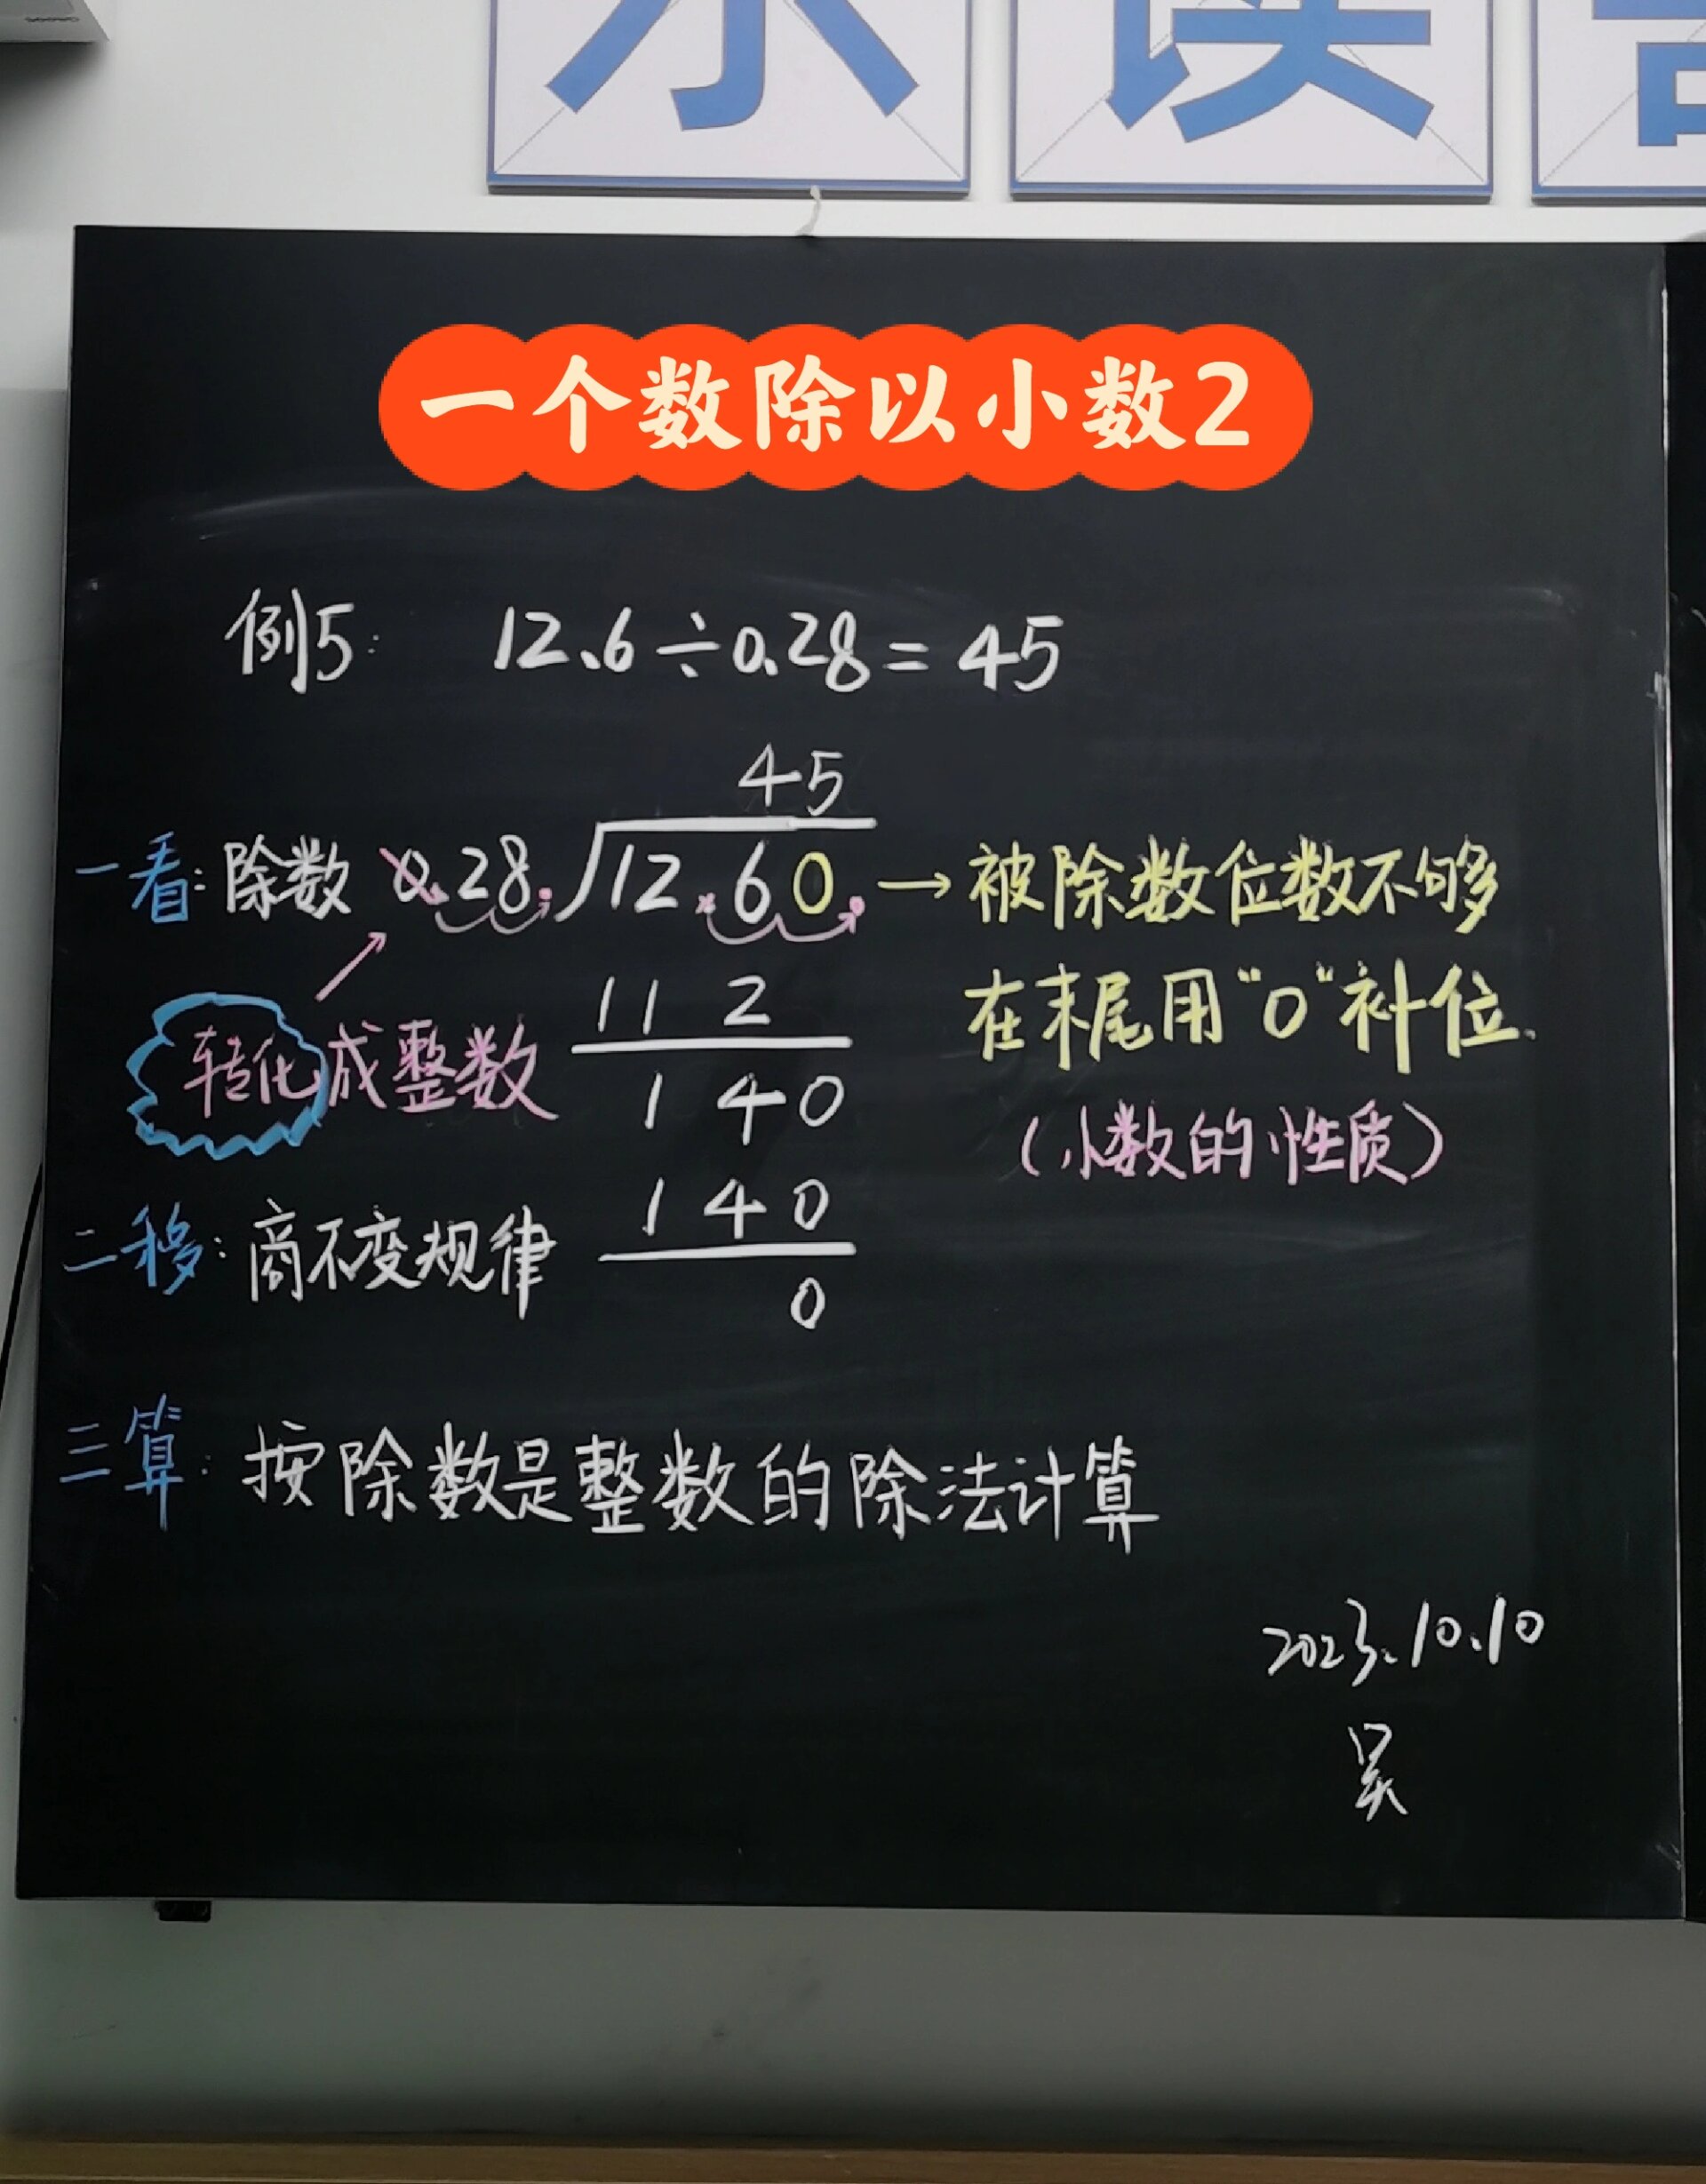 示 读
一个数除以小数2
例5: 12.6÷0.28=45
45
一看:除数 0.28.√12.60. → 被除数位数不够
在末尾用“0”补位.
转化成整数
11 2
1 40
(小数的性质)
1 40
二移:商不变规律
0
三算:按除数是整数的除法计算
2023.10.10
吴